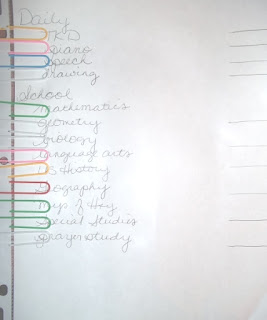 Daily
TKD
piano
Speech
drawing
School
mathematics
geometry
biology
language arts
US History
Geography
Mys. of Hxy
Special Studies
prayer study